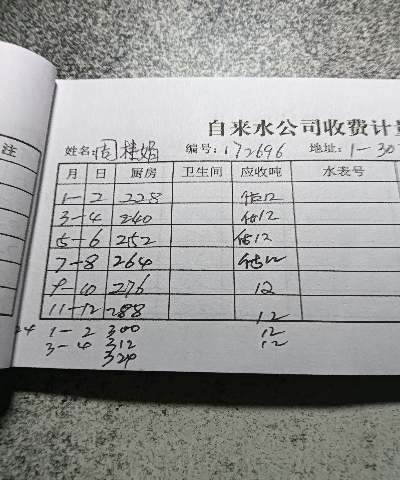 注
自来水公司收费计量
姓名: 周桂娟 编号: 172696 地址: 1-30
月 日 厨房 卫生间 应收吨 水表号
1-2 228 估12
3-4 240 估12
5-6 252 估12
7-8 264 估12
9-10 276 12
11-12 288 12
24 1-2 300 12
3-4 312 12
324